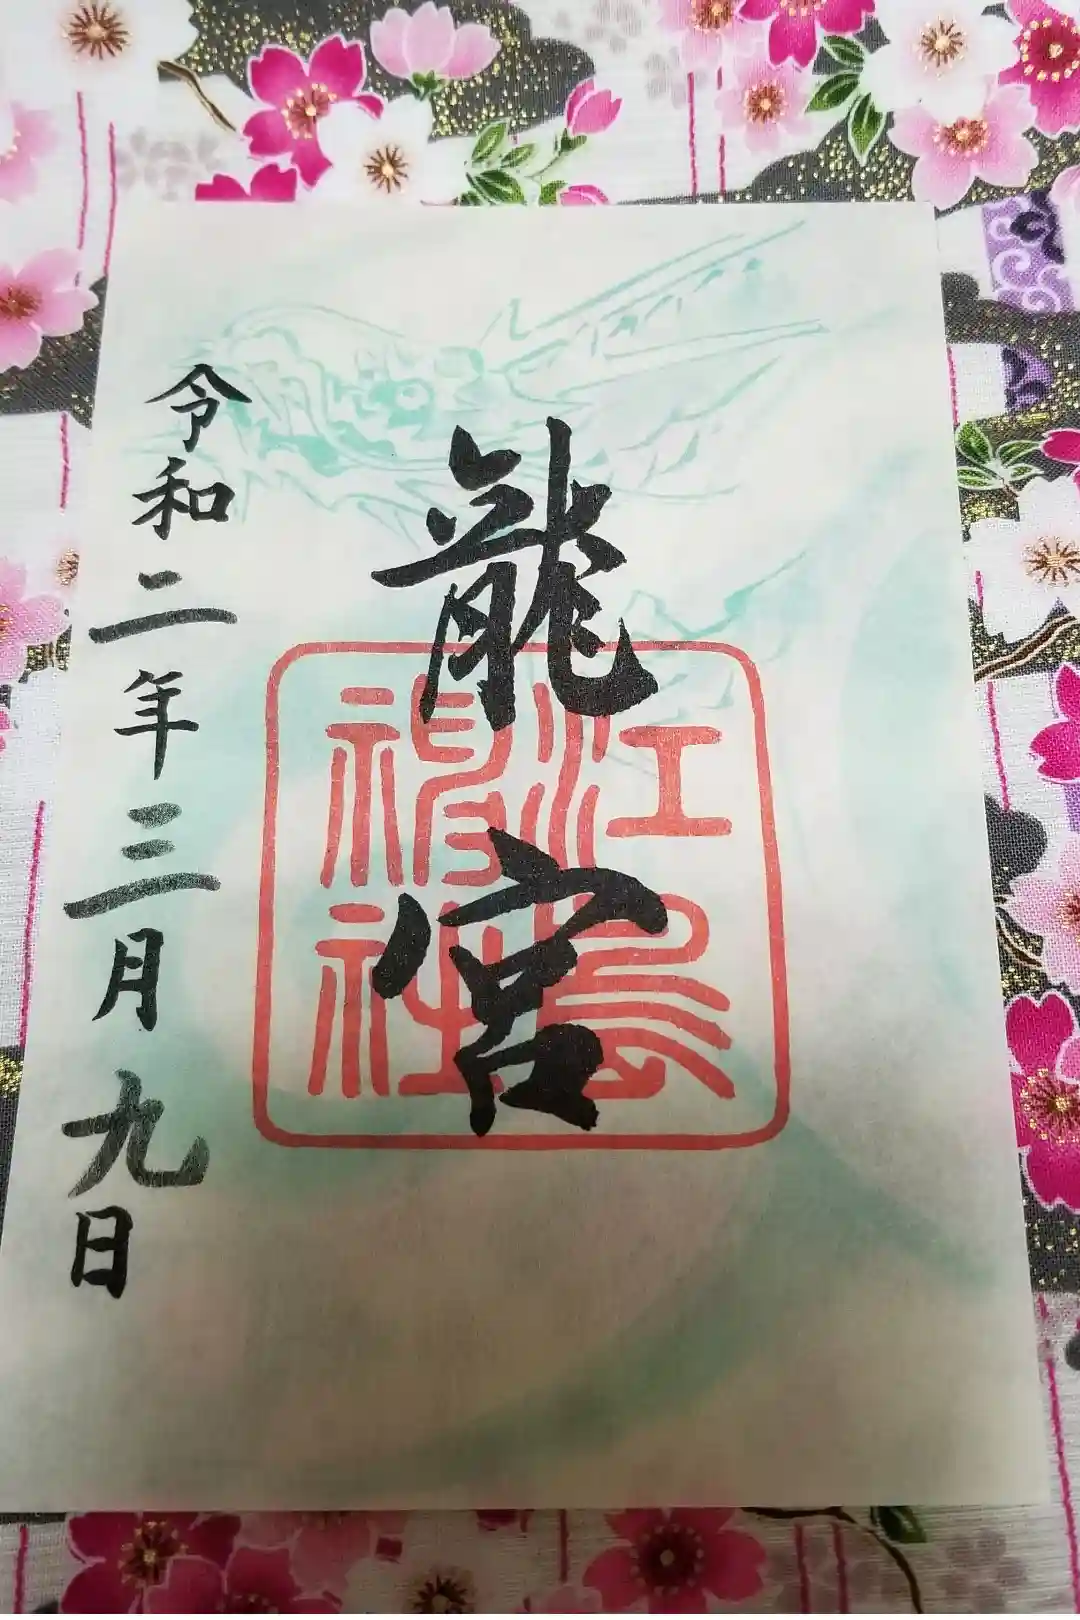 龍宮
江島
神社
令和二年三月九日